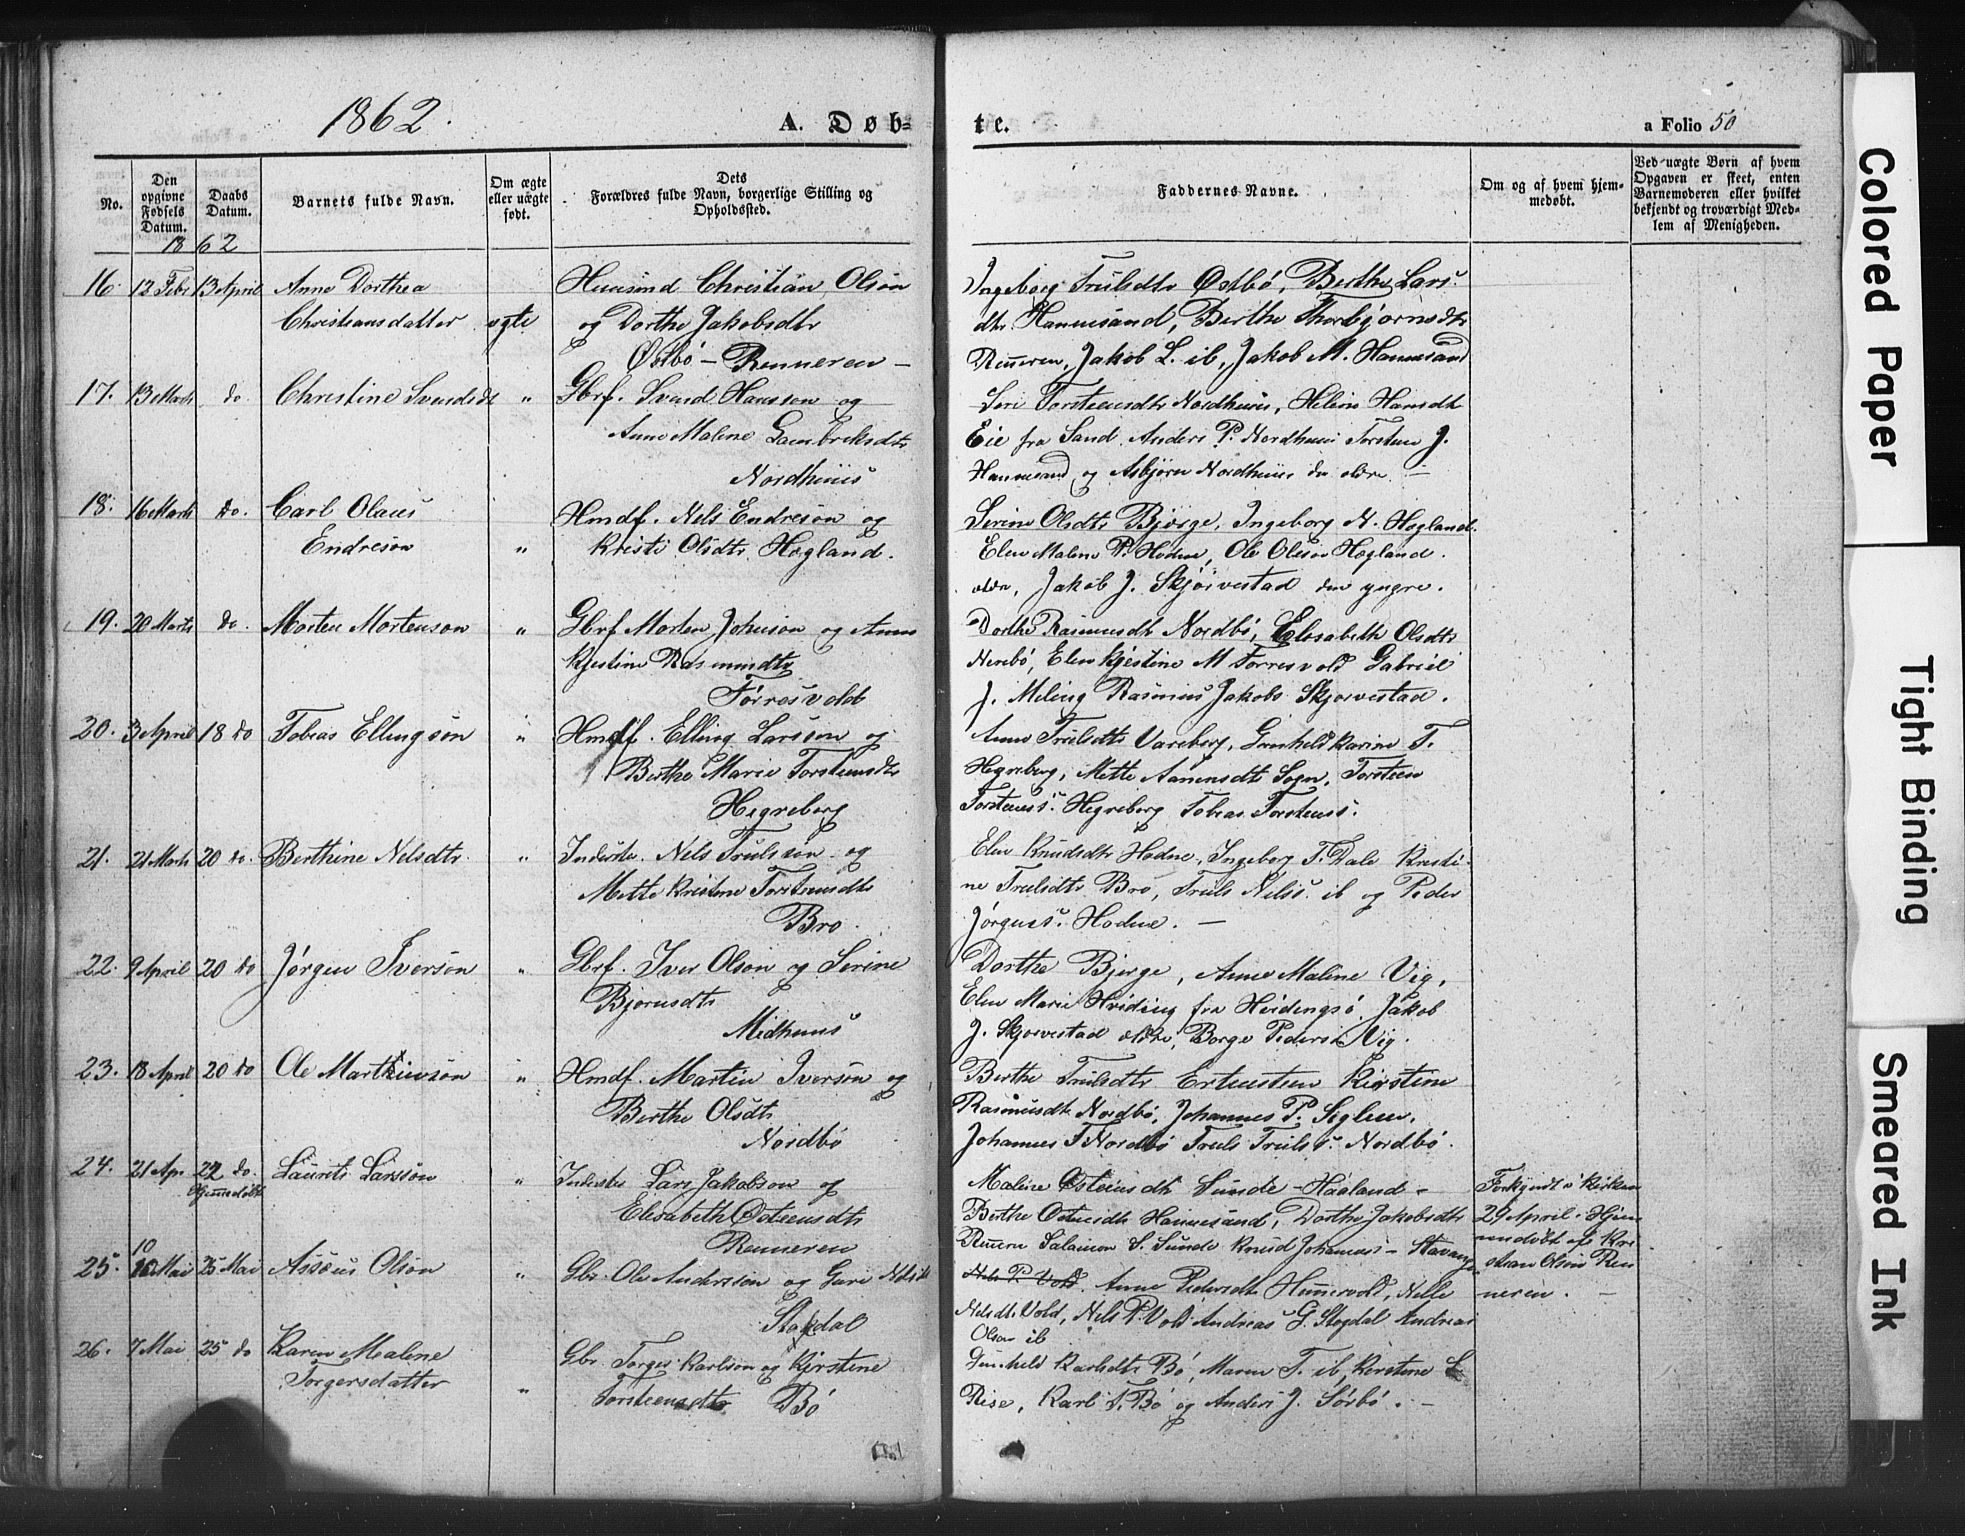 1862.
A. Døb-
te.
a Folio 50
No.
Den
opgivne
Fødsels
Datum.
Daabs
Datum.
Barnets fulde Navn.
Om ægte
eller uægte
født.
Dets
Forældres fulde Navn, borgerlige Stilling og
Opholdssted.
Faddernes Navne.
Om og af hvem hjem-
medøbt.
Ved uægte Børn af hvem
Opgaven er skeet, enten
Barnemoderen eller hvilket
bekjendt og troværdigt Med-
lem af Menigheden.
1862
16. 12 Febr 13 April Anne Dorthea
Christiansdatter ægte
Huusmd Christian Olson
og Dorthe Jakobsdtr
Østbø - Renneren -
Ingeborg Trulsdtr Østbø, Berthe Lars
dtr Hannesand, Berthe Thorbjørnsdtr
Renneren, Jakob L. ib, Jakob M. Hannesand
17. 13 Marts do Christine Svendsdt "
Gbrf. Svend Hansson og
Anne Malene Lambriksdtr
Nordhuus
Siri Torsteensdtr Nordhuus, Helene Hansdt
Eie fra Sand, Anders P. Nordhuus Torsteen J.
Hannesand og Asbjørn Nordhuus den eldre. -
18. 16 Marts do. Carl Olaus
Endreson "
Hmdf. Nels Endreson og
Kristi Olsdtr Hogland.
Serine Olsdtr Bjørge, Ingeborg N. Hogland.
Elen Malene P. Hodne, Ole Olson Hogland.
eldre, Jakob J. Skjørvestad den yngre.
19. 20 Marts do. Morten Mortenson "
Gbrf Morten Johnson og Anne
Kjestine Rasmusdtr
Førresvold
Dorthe Rasmusdtr Nordbø, Elisabeth Olsdtr
Nerebø, Elen Kjestine M Førresvold Gabriel
J. Meling Rasmus Jakobs Skjørvestad.
20. 3 April 18 do Tobias Ellingson "
Hmdf. Elling Larsson og
Berthe Marie Torsteensdtr
Hegreberg
Anne Trulsdtr Vareberg, Gunheld Karine T.
Hegreberg, Mette Aanensdtr Sogn, Torsteen
Torsteenss. Hegreberg Tobias Torsteenss.
21. 21 Marts 20 do. Berthine Nelsdtr. "
Inderste. Nels Trulsson og
Mette Kristene Torsteensdtr
Bro.
Elen Knudsdtr Hodne, Ingeborg T. Dale Kristi-
ne Trulsdtr Bro, Truls Nelss. ib og Peder
Jørgenss. Hodne. -
22. 9 April 20 do Jørgen Iverson "
Gbrf. Iver Olson og Serine
Bjørnsdtr
Midhuus
Dorthe Bjerge, Anne Malene Vig,
Elen Marie Hviding fra Hvidengsø, Jakob
J. Skjørvestad eldre, Børge Peders. Vig.
23. 18 April 20 do Ole Martinson "
Hmdf. Martin Iverson og
Berthe Olsdtr
Nordbø
Berthe Trulsdtr Ertensteen Kirstine
Rasmusdtr Nordbø, Johannes P. Seglem,
Johannes T Nordbø Truls Trulss. Nordbø.
24. 21 Apr 22 do.
Hjemmedøbt
Laurits Larsson "
Inderster Lars Jakobson og
Elisabeth Østeensdtr
Renneren
Malene Østeensdtr Sunde - Haaland -
Berthe Osteensdtr Hannesand, Dorthe Jakobsdtr
Renneren Salamon S. Sunde Knud Johannes - Stavanger
Forkyndt i Kirken
29 April. Hjem
medøbt af Kri
stian Olson Ren
neren. -
25. 10
10 Mai 25 Mai Assæus Olson "
Gbr. Ole Anderson og Guri Nelsdt
Stogdal
Nels P. Vold. Anne Pedersdtr Hunnevold, Nelle
Nelsdtr Vold, Nels P. Vold Andreas G. Stogdal Andreas
Olson ib
26. 7 Mai 25 do Karen Malene
Torgersdatter "
Gbr. Torger Karlson og Kjerstene
Torsteensdtr Bø
Gunheld Karlsdtr Bø, Maren T. ib, Kerstene L
Reise, Karl T. Bø og Anders J. Sørbø. -
Colored Paper
Tight Binding
Smeared Ink